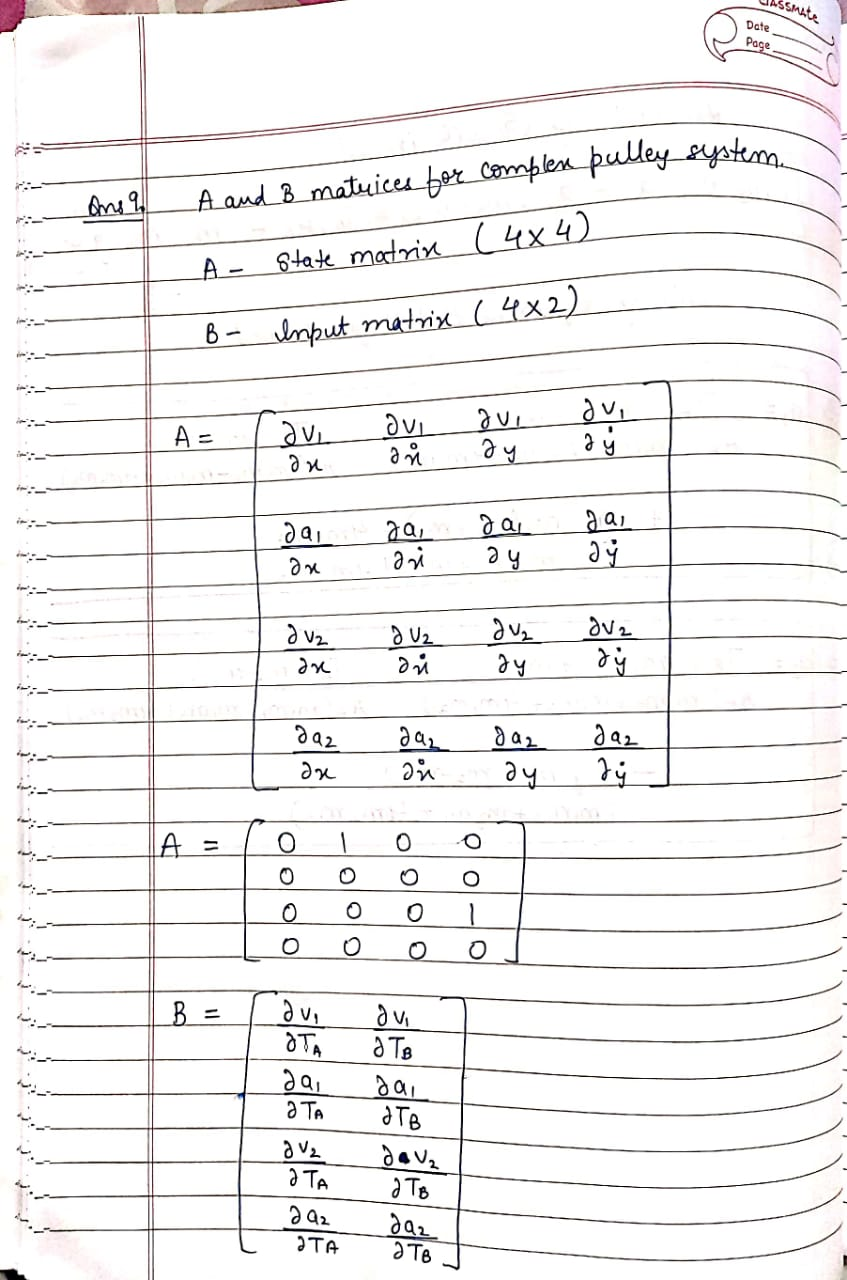 classmate
Date
Page
Ans 9. A and B matrices for complex pulley system.
A - State matrix (4x4)
B - Input matrix (4x2)
A = [ ∂v₁/∂x ∂v₁/∂ẋ ∂v₁/∂y ∂v₁/∂ẏ
∂a₁/∂x ∂a₁/∂ẋ ∂a₁/∂y ∂a₁/∂ẏ
∂v₂/∂x ∂v₂/∂ẋ ∂v₂/∂y ∂v₂/∂ẏ
∂a₂/∂x ∂a₂/∂ẋ ∂a₂/∂y ∂a₂/∂ẏ ]
A = [ 0 1 0 0
0 0 0 0
0 0 0 1
0 0 0 0 ]
B = [ ∂v₁/∂T_A ∂v₁/∂T_B
∂a₁/∂T_A ∂a₁/∂T_B
∂v₂/∂T_A ∂v₂/∂T_B
∂a₂/∂T_A ∂a₂/∂T_B ]